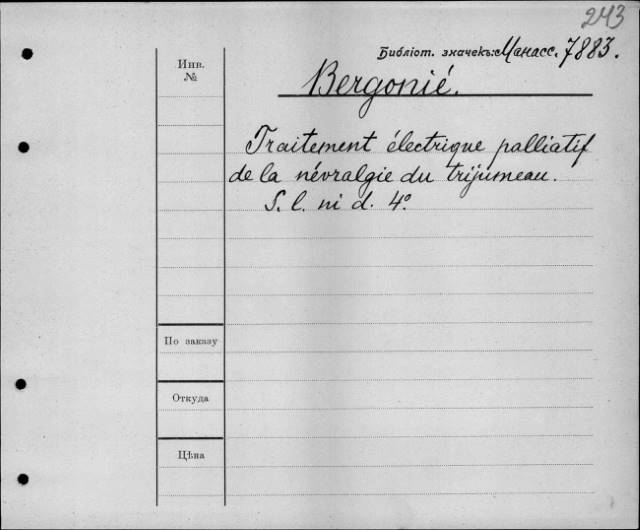 243
Библіот. значекъ: Манасс. 7883.
Инв.
№
Bergonié.
Traitement électrique palliatif
de la névralgie du trijumeau.
S. l. ni d. 4°
По заказу
Откуда
Цѣна